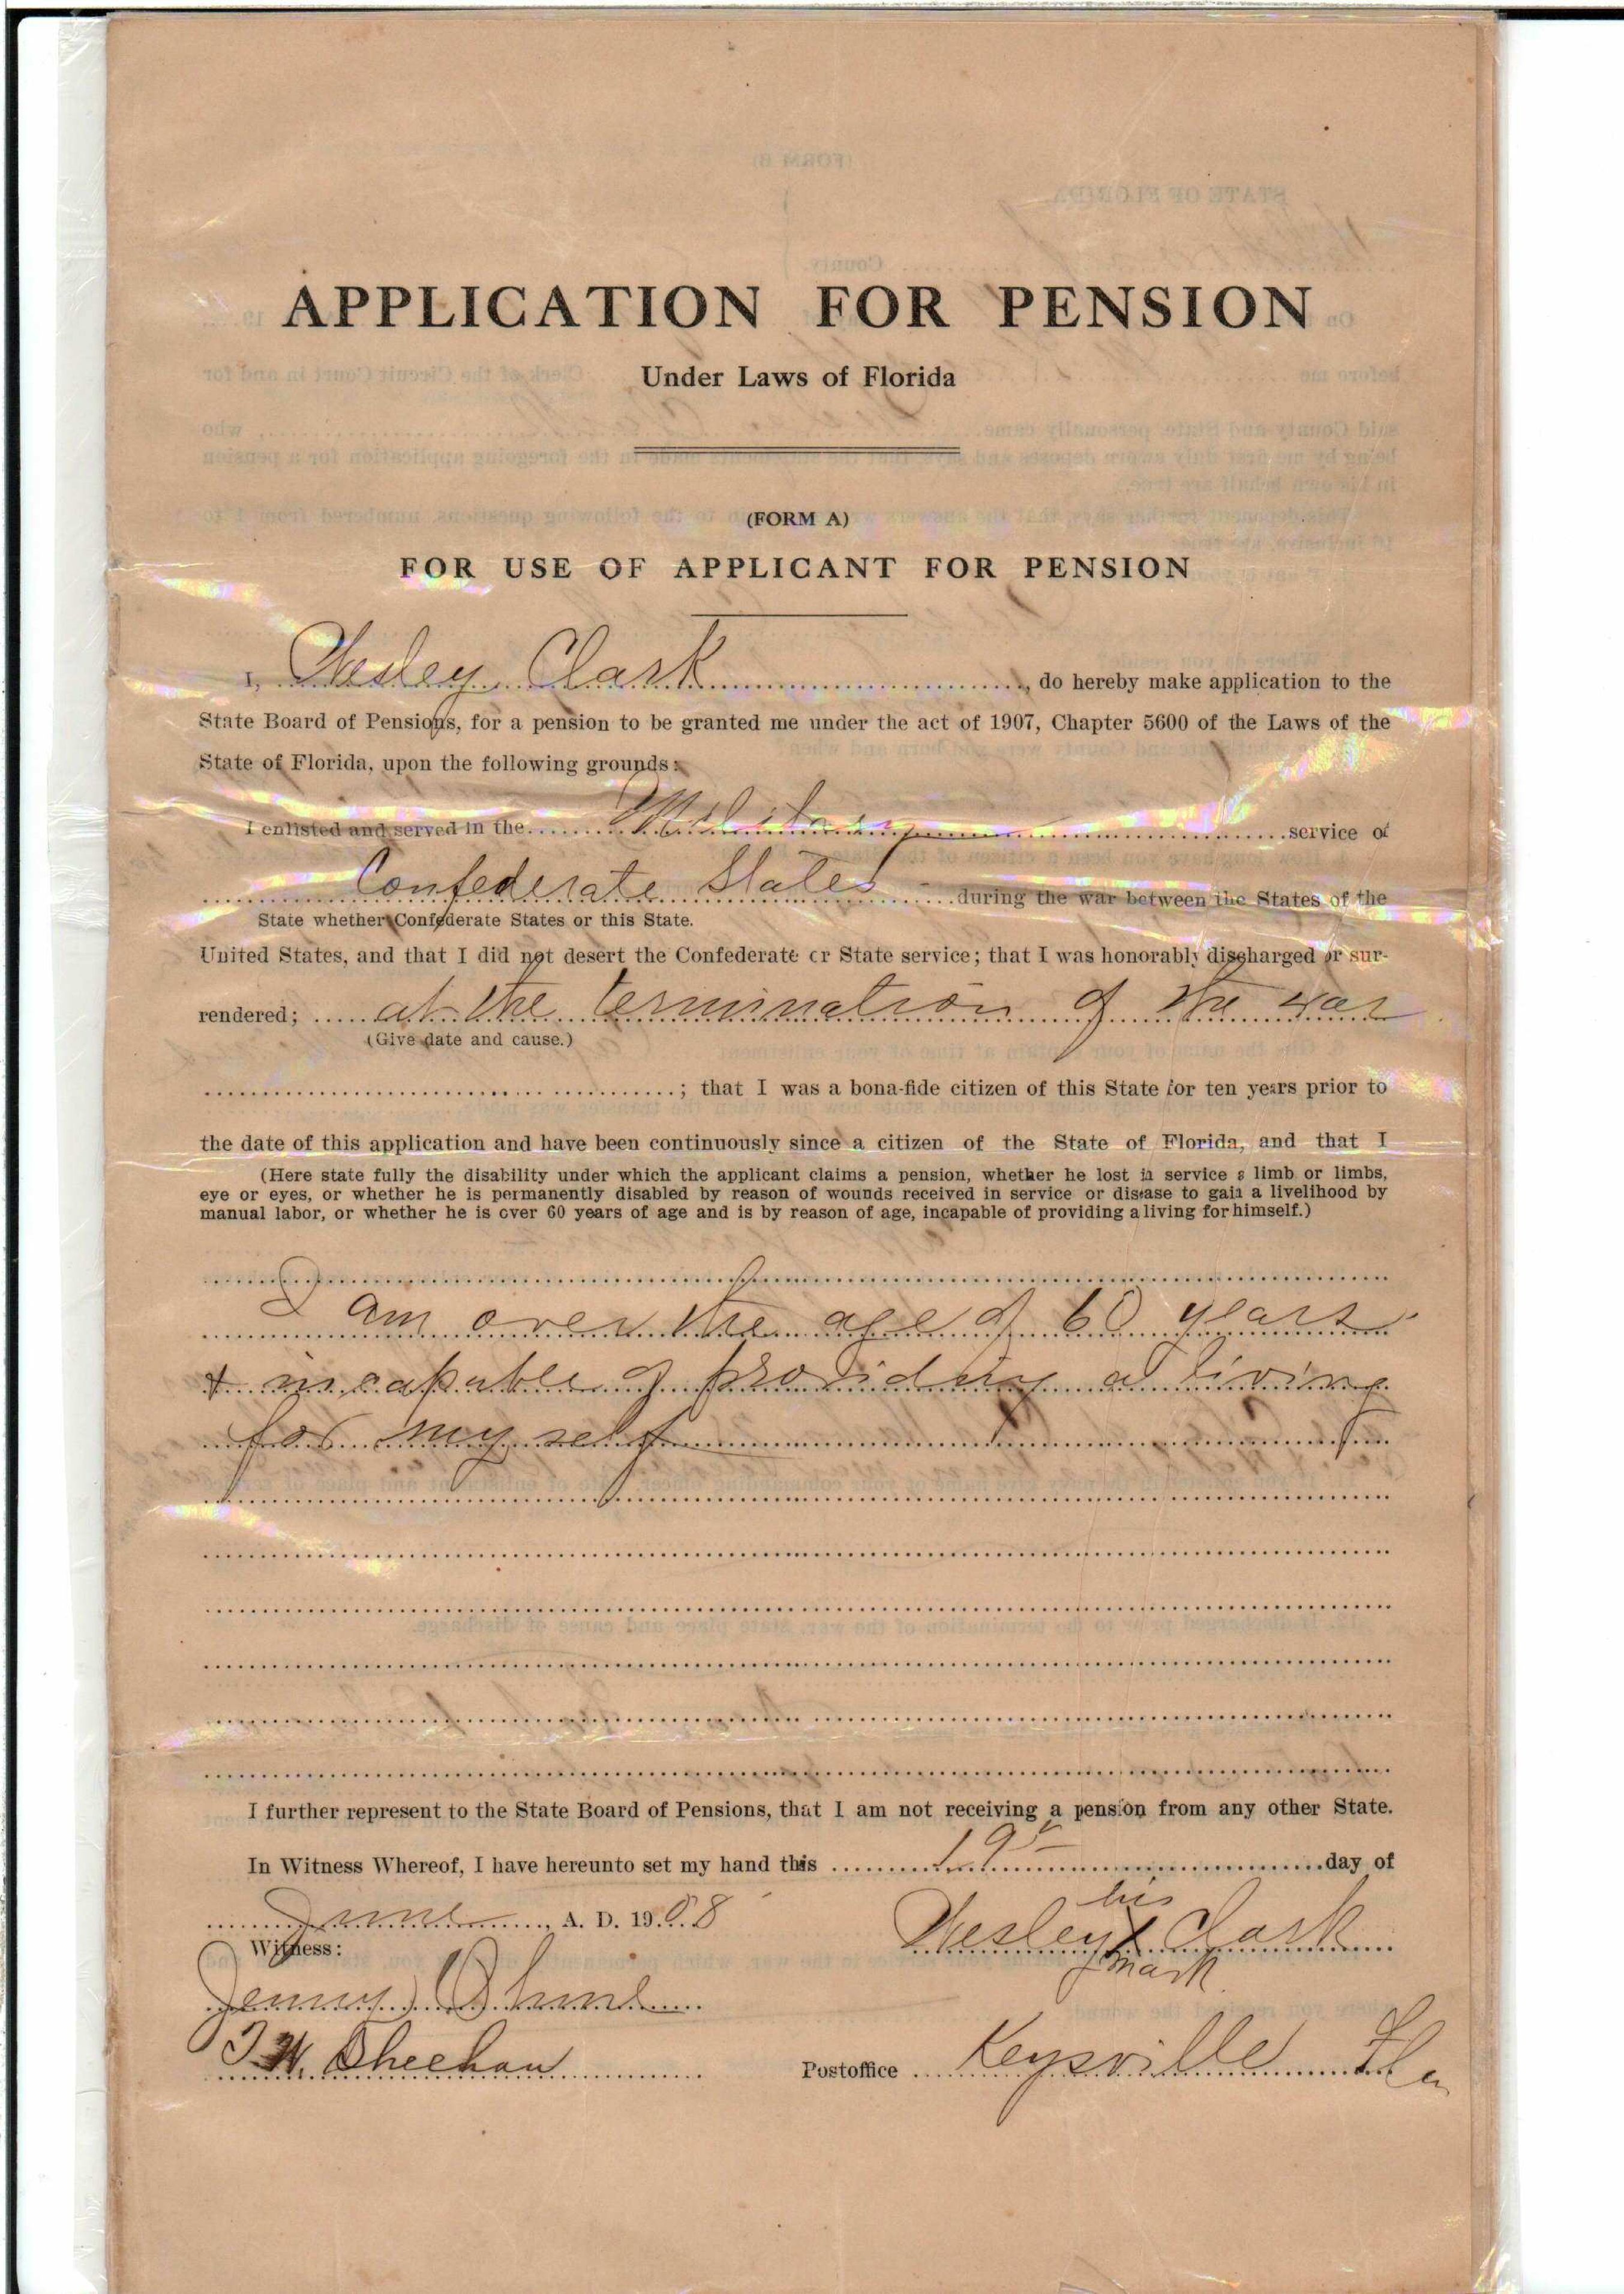 APPLICATION FOR PENSION
Under Laws of Florida
(FORM A)
FOR USE OF APPLICANT FOR PENSION
I, Wesley Clark, do hereby make application to the
State Board of Pensions, for a pension to be granted me under the act of 1907, Chapter 5600 of the Laws of the
State of Florida, upon the following grounds:
I enlisted and served in the Military service of
Confederate States during the war between the States of the
State whether Confederate States or this State.
United States, and that I did not desert the Confederate or State service; that I was honorably discharged or sur-
rendered; at the termination of the war
(Give date and cause.)
; that I was a bona-fide citizen of this State for ten years prior to
the date of this application and have been continuously since a citizen of the State of Florida, and that I
(Here state fully the disability under which the applicant claims a pension, whether he lost in service a limb or limbs,
eye or eyes, or whether he is permanently disabled by reason of wounds received in service or disease to gain a livelihood by
manual labor, or whether he is over 60 years of age and is by reason of age, incapable of providing a living for himself.)
I am over the age of 60 years
& incapable of providing a living
for my self
I further represent to the State Board of Pensions, that I am not receiving a pension from any other State.
In Witness Whereof, I have hereunto set my hand this 19 day of
June, A. D. 1908
his
Wesley X Clark
mark
Witness:
W. Sheehan
Postoffice Keysville Fla